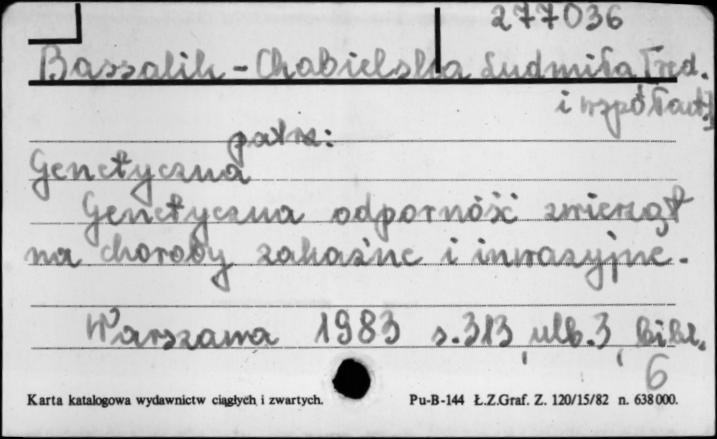 277036
Bassalik-Chabielska Ludmiła [red.
i współaut.]
patrz:
Genetyczna
Genetyczna odporność zwierząt
na choroby zakaźne i inwazyjne.
Warszawa 1983 s. 313, nlb. 3, bibl.
6
Karta katalogowa wydawnictw ciągłych i zwartych.
Pu-B-144 Ł.Z.Graf. Z. 120/15/82 n. 638 000.